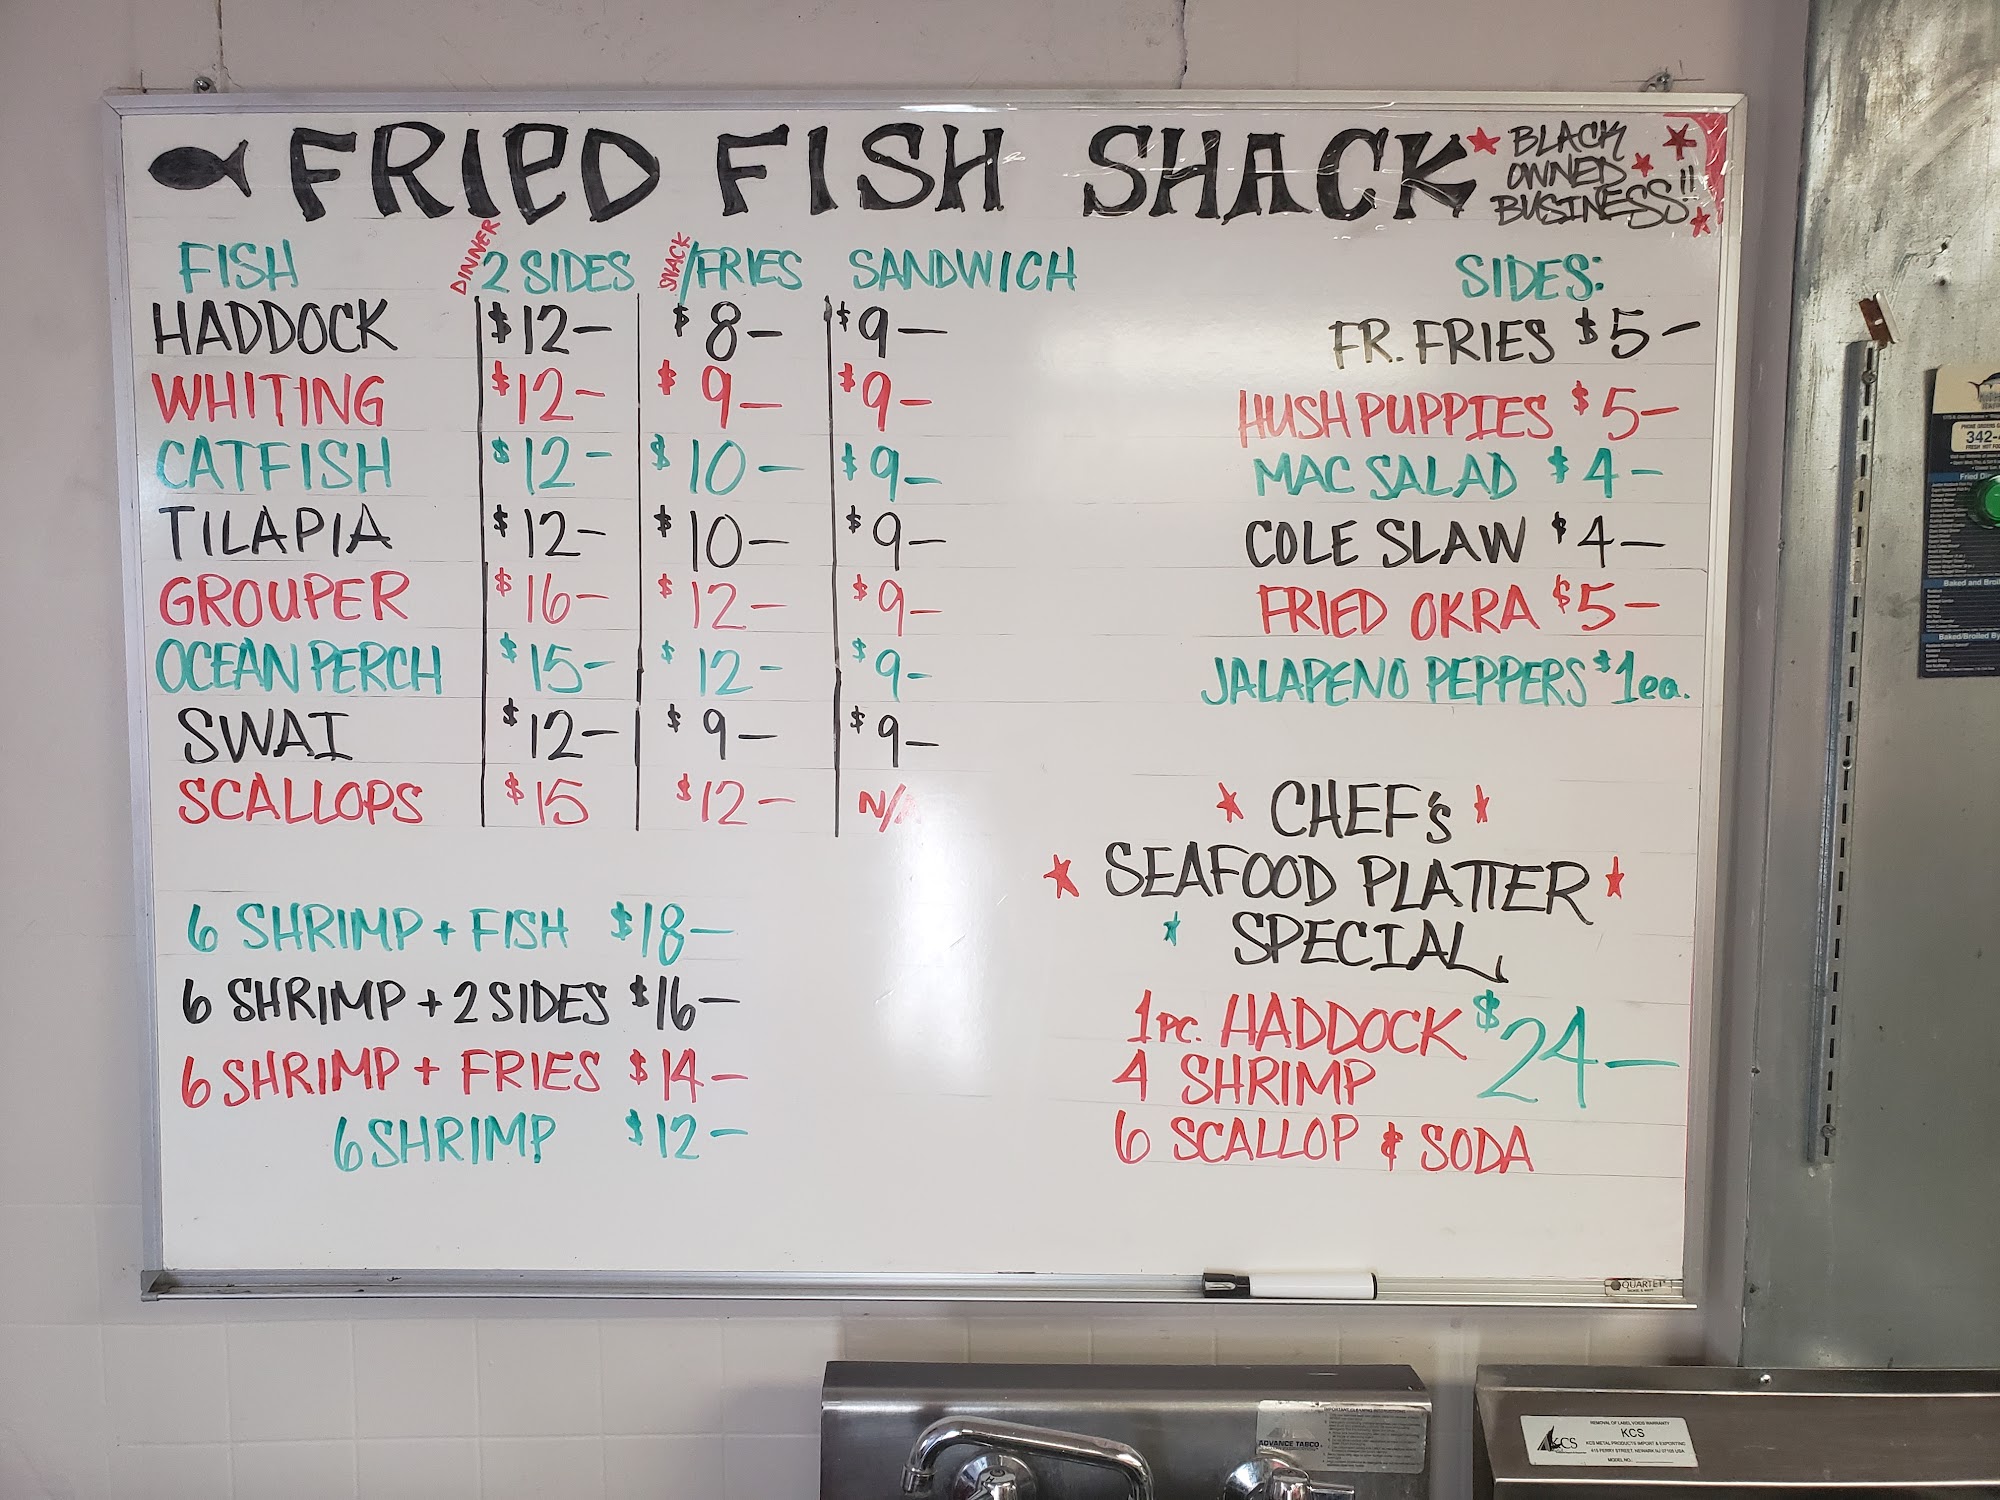 FRIED FISH SHACK
BLACK
OWNED
BUSINESS!!
FISH DINNER 2 SIDES SNACK /FRIES SANDWICH
HADDOCK $12— $8— $9—
WHITING $12— $9— $9—
CATFISH $12— $10— $9—
TILAPIA $12— $10— $9—
GROUPER $16— $12— $9—
OCEAN PERCH $15— $12— $9—
SWAI $12— $9— $9—
SCALLOPS $15 $12— N/A
6 SHRIMP + FISH $18—
6 SHRIMP + 2 SIDES $16—
6 SHRIMP + FRIES $14—
6 SHRIMP $12—
SIDES:
FR. FRIES $5—
HUSH PUPPIES $5—
MAC SALAD $4—
COLE SLAW $4—
FRIED OKRA $5—
JALAPENO PEPPERS $1ea.
CHEF's
SEAFOOD PLATTER
SPECIAL
1pc. HADDOCK $24—
4 SHRIMP
6 SCALLOP & SODA
QUARTET
342-
Fried Di
Baked and Broil
Baked/Broiled By
IMPORTANT CLEANING INSTRUCTIONS
ADVANCE TABCO
REMOVAL OF LABEL VOIDS WARRANTY
KCS
KCS
KCS METAL PRODUCTS IMPORT & EXPORTING
415 PERRY STREET, NEWARK NJ 07105 USA
MODEL NO.